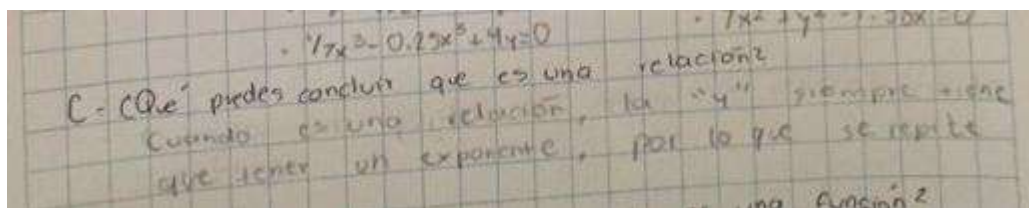 · 1/7x³-0.25x³+4y=0
C- ¿Qué puedes concluir que es una relación?
Cuando es una relación, la "y" siempre tiene
que tener un exponente, por lo que se repite
una función?